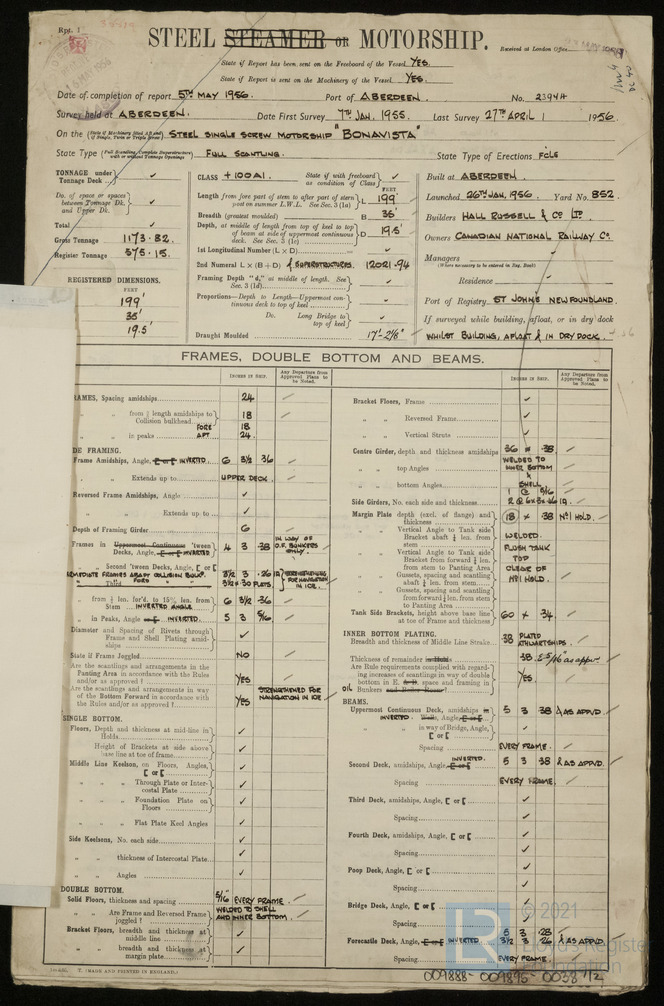 Rpt. 1
STEEL STEAMER OR MOTORSHIP.
Received at London Office
State if Report has been sent on the Freeboard of the Vessel YES.
State if Report is sent on the Machinery of the Vessel YES.
Date of completion of report 5TH MAY 1956. Port of ABERDEEN. No. 23944
Survey held at ABERDEEN. Date First Survey 7TH JAN. 1955. Last Survey 27TH APRIL 1956
On the STEEL SINGLE SCREW MOTORSHIP "BONAVISTA"
State Type FULL SCANTLING. State Type of Erections FCLE
TONNAGE under Tonnage Deck ✓
No. of space or spaces between Tonnage Dk. and Upper Dk. ✓
Total ✓
Gross Tonnage 1173.82.
Register Tonnage 575.15.
REGISTERED DIMENSIONS.
FEET
199'
35'
19.5'
CLASS +100A1. State if with freeboard as condition of Class ✓
FEET
Length from fore part of stem to after part of stern post on summer L.W.L. See Sec. 3 (1a) L 199'
Breadth (greatest moulded) B 35'
Depth, at middle of length from top of keel to top of beam at side of uppermost continuous deck. See Sec. 3 (1c) D 19.5'
1st Longitudinal Number (L × D) ✓
2nd Numeral L × (B + D) & SUPERSTRUCTURES. 12021.94
Framing Depth "d," at middle of length. See Sec. 3 (1d) ✓
Proportions—Depth to Length—Uppermost continuous deck to top of keel ✓
Do. Long Bridge to top of keel ✓
Draught Moulded 17'-2⅝"
Built at ABERDEEN.
Launched 26TH JAN, 1956. Yard No. 852
Builders HALL RUSSELL & CO LTD.
Owners CANADIAN NATIONAL RAILWAY CO.
Managers
(Where necessary to be entered in Reg. Book)
Residence
Port of Registry ST JOHN'S NEWFOUNDLAND.
If surveyed while building, afloat, or in dry dock
WHILST BUILDING, AFLOAT & IN DRY DOCK.
FRAMES, DOUBLE BOTTOM AND BEAMS.
INCHES IN SHIP. Any Departure from Approved Plans to be Noted.
RAMES, Spacing amidships 24
" " from ⅕ length amidships to Collision bulkhead 18
" " in peaks FORE 18 AFT 24.
DE FRAMING.
Frame Amidships, Angle, [ or [ INVERTED. 6 3½ 36
" " Extends up to UPPER DECK.
Reversed Frame Amidships, Angle ✓
" " Extends up to ✓
Depth of Framing Girder 6
Frames in Uppermost Continuous 'tween Decks, Angle, [ or [ INVERTED 4 3 38 IN WAY OF O.F. BUNKERS ONLY.
" " Second 'tween Decks, Angle, [ or [
3½ 3 .26 STRENGTHENING FOR NAVIGATION IN ICE.
" " from ⅕ len. for'd. to 15% len. from Stem INVERTED ANGLE 6 3½ 36
" in Peaks, Angle or [ INVERTED. 5 3 5/16
Diameter and Spacing of Rivets through Frame and Shell Plating amidships ✓
State if Frame Joggled NO
Are the scantlings and arrangements in the Panting Area in accordance with the Rules and/or as approved? YES
Are the scantlings and arrangements in way of the Bottom Forward in accordance with the Rules and/or as approved? YES STRENGTHENED FOR NAVIGATION IN ICE.
SINGLE BOTTOM.
Floors, Depth and thickness at mid-line in Holds ✓
" Height of Brackets at side above base line at toe of frame ✓
Middle Line Keelson, on Floors, Angles, [ or [ ✓
" " Through Plate or Intercostal Plate ✓
" " Foundation Plate on Floors ✓
" " Flat Plate Keel Angles ✓
Side Keelsons, No. each side ✓
" " thickness of Intercostal Plate ✓
" " Angles ✓
DOUBLE BOTTOM.
Solid Floors, thickness and spacing 5/16 EVERY FRAME.
" " Are Frame and Reversed Frame joggled? WELDED TO SHELL AND INNER BOTTOM.
Bracket Floors, breadth and thickness at middle line ✓
" " breadth and thickness at margin plate ✓
INCHES IN SHIP. Any Departure from Approved Plans to be Noted.
Bracket Floors, Frame ✓
" " Reversed Frame ✓
" " Vertical Struts ✓
Centre Girder, depth and thickness amidships 36 × .38.
" " top Angles WELDED TO INNER BOTTOM
" " bottom Angles & SHELL
Side Girders, No. each side and thickness
Margin Plate depth (excl. of flange) and thickness 18 × .38 No.1 HOLD.
" " Vertical Angle to Tank side Bracket abaft ¼ len. from stem WELDED.
" " Vertical Angle to Tank side Bracket from forward ¼ len. from stem to Panting Area FLUSH TANK TOP
" " Gussets, spacing and scantling abaft ¼ len. from stem CLEAR OF No.1 HOLD.
" " Gussets, spacing and scantling from forward ¼ len. from stem to Panting Area
Tank Side Brackets, height above base line at toe of Frame and thickness 60 × 34
INNER BOTTOM PLATING.
Breadth and thickness of Middle Line Strake 38 PLATED ATHWARTSHIPS.
Thickness of remainder in Holds .38
Are Rule requirements complied with regarding increases of scantlings in way of double bottom in E. space and framing in OIL Bunkers and Boiler Room? YES.
BEAMS.
Uppermost Continuous Deck, amidships INVERTED 5 3 38 & AS APPVD.
" " in way of Bridge, Angle, [ or [
Spacing EVERY FRAME.
Second Deck, amidships, Angle, [ or [ INVERTED. 5 3 38 & AS APPVD.
Spacing EVERY FRAME.
Third Deck, amidships, Angle, [ or [ ✓
Spacing ✓
Fourth Deck, amidships, Angle, [ or [ ✓
Spacing ✓
Poop Deck, Angle, [ or [ ✓
Spacing ✓
Bridge Deck, Angle, [ or [ ✓
Spacing
Forecastle Deck, Angle, [ or [ INVERTED. 5 3 .28 3½ 3 .26 & AS APPVD.
Spacing EVERY FRAME.
(MADE AND PRINTED IN ENGLAND.)
LR © 2021
Lloyd's Register
Foundation
009888-009895-0038 1/2